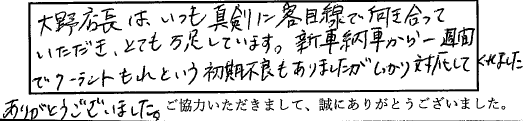 大野店長は、いつも真剣に客目線で向き合って
いただき、とても万足しています。新車納車から一週間
でクーラントもれという初期不良もありましたがしっかり対応してくれました
ありがとうございました。
ご協力いただきまして、誠にありがとうございました。